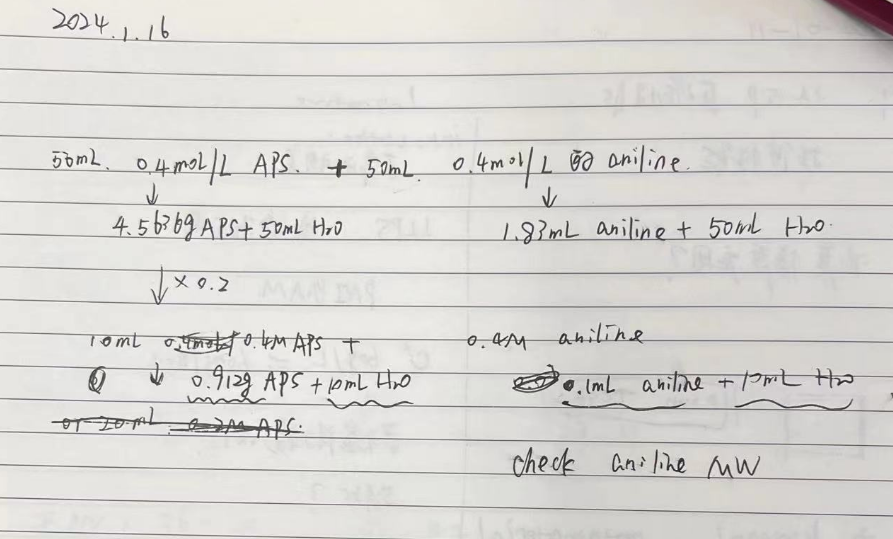 2024.1.16
50mL. 0.4mol/L APS. + 50mL. 0.4mol/L 的 aniline.
↓ ↓
4.5636g APS + 50mL H2O 1.83mL aniline + 50mL H2O.
↓ × 0.2
10mL 0.4M APS + 0.4M aniline
↓ 0.912g APS + 10mL H2O 0.1mL aniline + 10mL H2O
or 20mL 0.2M APS.
check aniline MW